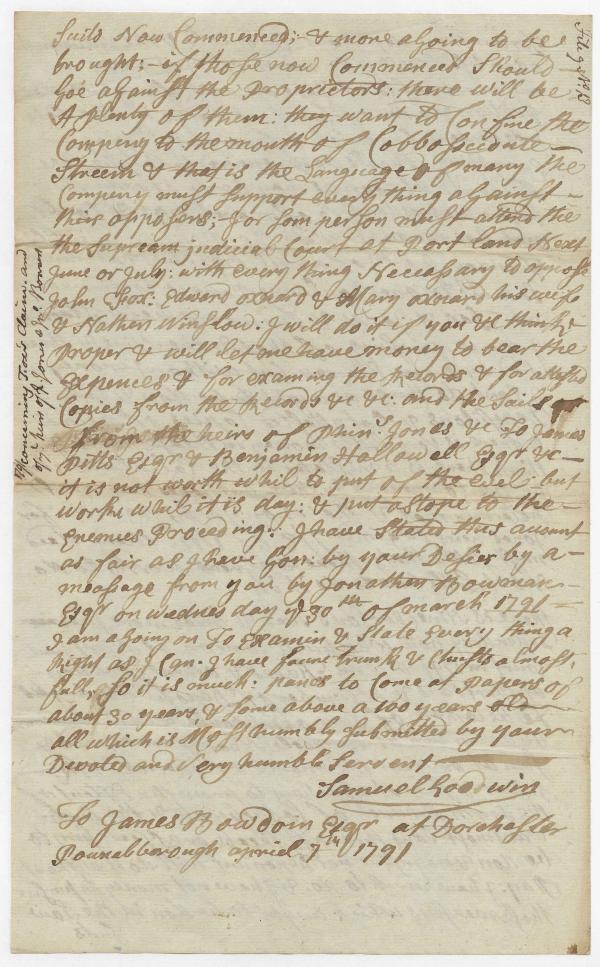 Suits Now Commenced; & more agoing to be
brought:- if those now Commenced Should -
Goe against the Proprietors: there will be
A plenty of them: they want to Confine the
Company to the mouth of Cobbossecunte -
Streem & that is the Language of many the
Company must Support every thing against -
thire opposers; - for som person must attend the
the Supream judicial Court at Portland Next
June or July: with every thing Necessary to oppose
John Fox: Edward oxnard & Mary oxnard his wife
& Nathen Winslow: I will do it if you &c think
Proper & will let me have money to bear the
Expences & for examing the Records & for atested
Copies from the Records &c &c: and the Suits
from the heirs of Phins Jones &c To James
Pitts Esqr & Benjamin Hallowell Esqr &c -
it is not worth whil to put of the evel: but
worke whil it is day: & put a stope to the -
Enemies Proceding: I have Stated this acount
as fair as I have Gon: by your Desier by a -
meassage from you by Jonathan Bowman -
Esqr on wednes day ye 30th of march 1791 -
I am agoing on To Examin & State Every thing a
Right as I Can. I have trunk & Chists almost
full, So it is much: panes to Come at Papers of
about 30 years, & Some above a 100 years old -
all which is Most humbly Submitted by your
Devoted and Very humble Servent
Samuel Goodwin
To James Bowdoin Esqr at Dorchester
Pounalborough apriel 7th 1791
concerning Fox's Claim. and
of ye heirs of Ph Jones & Jno Bowers
File 9 No 8